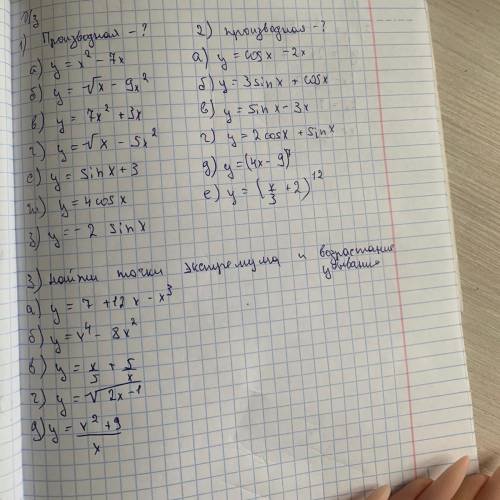 Д/з
1) Производная - ?
а) y = x² - 7x
б) y = √x - 9x²
в) y = 7x² + 3x
г) y = √x - 5x²
е) y = sin x + 3
ж) y = 4 cos x
з) y = - 2 sin x
2) производная - ?
а) y = cos x - 2x
б) y = 3 sin x + cos x
в) y = sin x - 3x
г) y = 2 cos x + sin x
д) y = (4x - 9)⁷
е) y = (x/3 + 2)¹²
3) найти точки экстремума и возрастание
убывание
а) y = 7 + 12x - x³
б) y = x⁴ - 8x²
в) y = x/5 + 5/x
г) y = √2x-1
д) y = x² + 9 / x